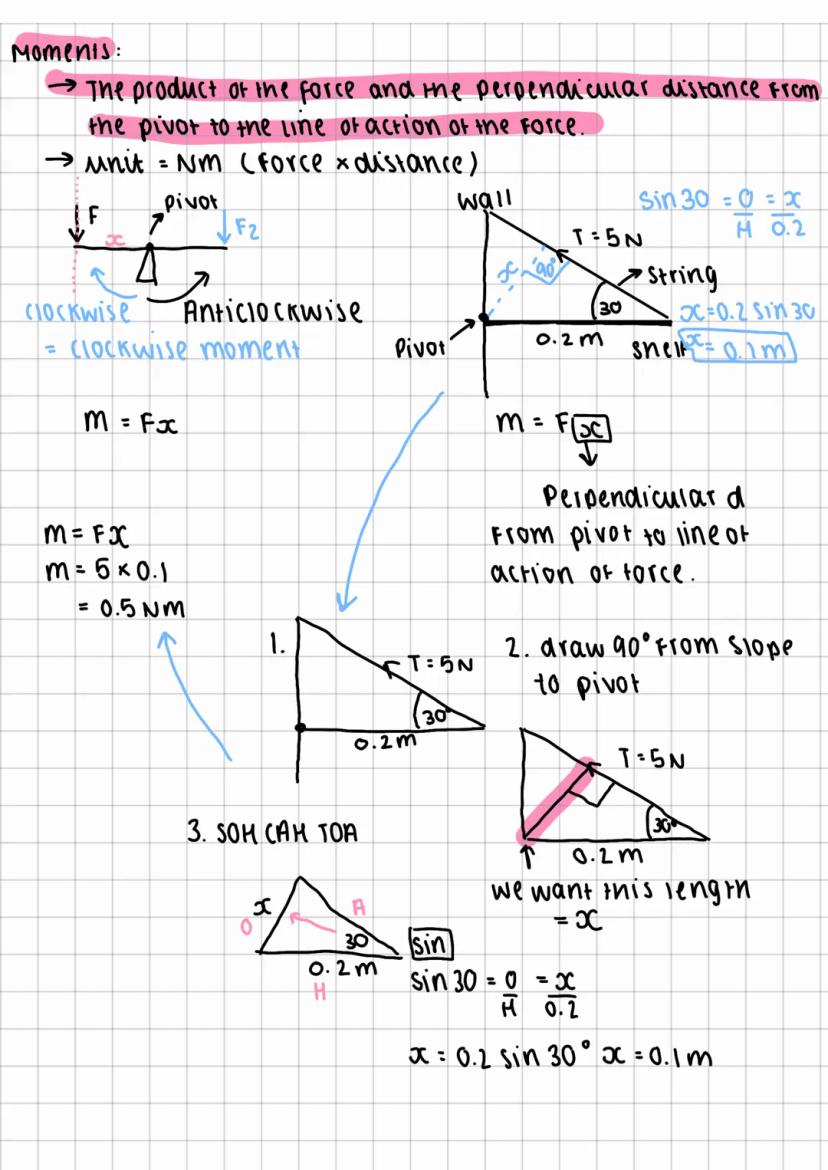 Moments:
→ The product of the force and the perpendicular distance from
the pivot to the line of action of the force.
→ unit = Nm (force × distance)
F
pivot
F2
x
clockwise
Anticlockwise
= clockwise moment
m = Fx
wall
sin 30 = O/H = x/0.2
T = 5N
x
90°
string
30
x = 0.2 sin 30
Pivot
0.2m
shelf
x = 0.1m
m = Fx
Perpendicular d
from pivot to line of
action of force.
m = Fx
m = 5 × 0.1
= 0.5 Nm
1.
T = 5N
30°
0.2m
2. draw 90° from slope
to pivot
T = 5N
30°
0.2m
we want this length
= x
3. SOH CAH TOA
x
O
A
30
0.2m
H
sin
sin 30 = O/H = x/0.2
x = 0.2 sin 30° x = 0.1m